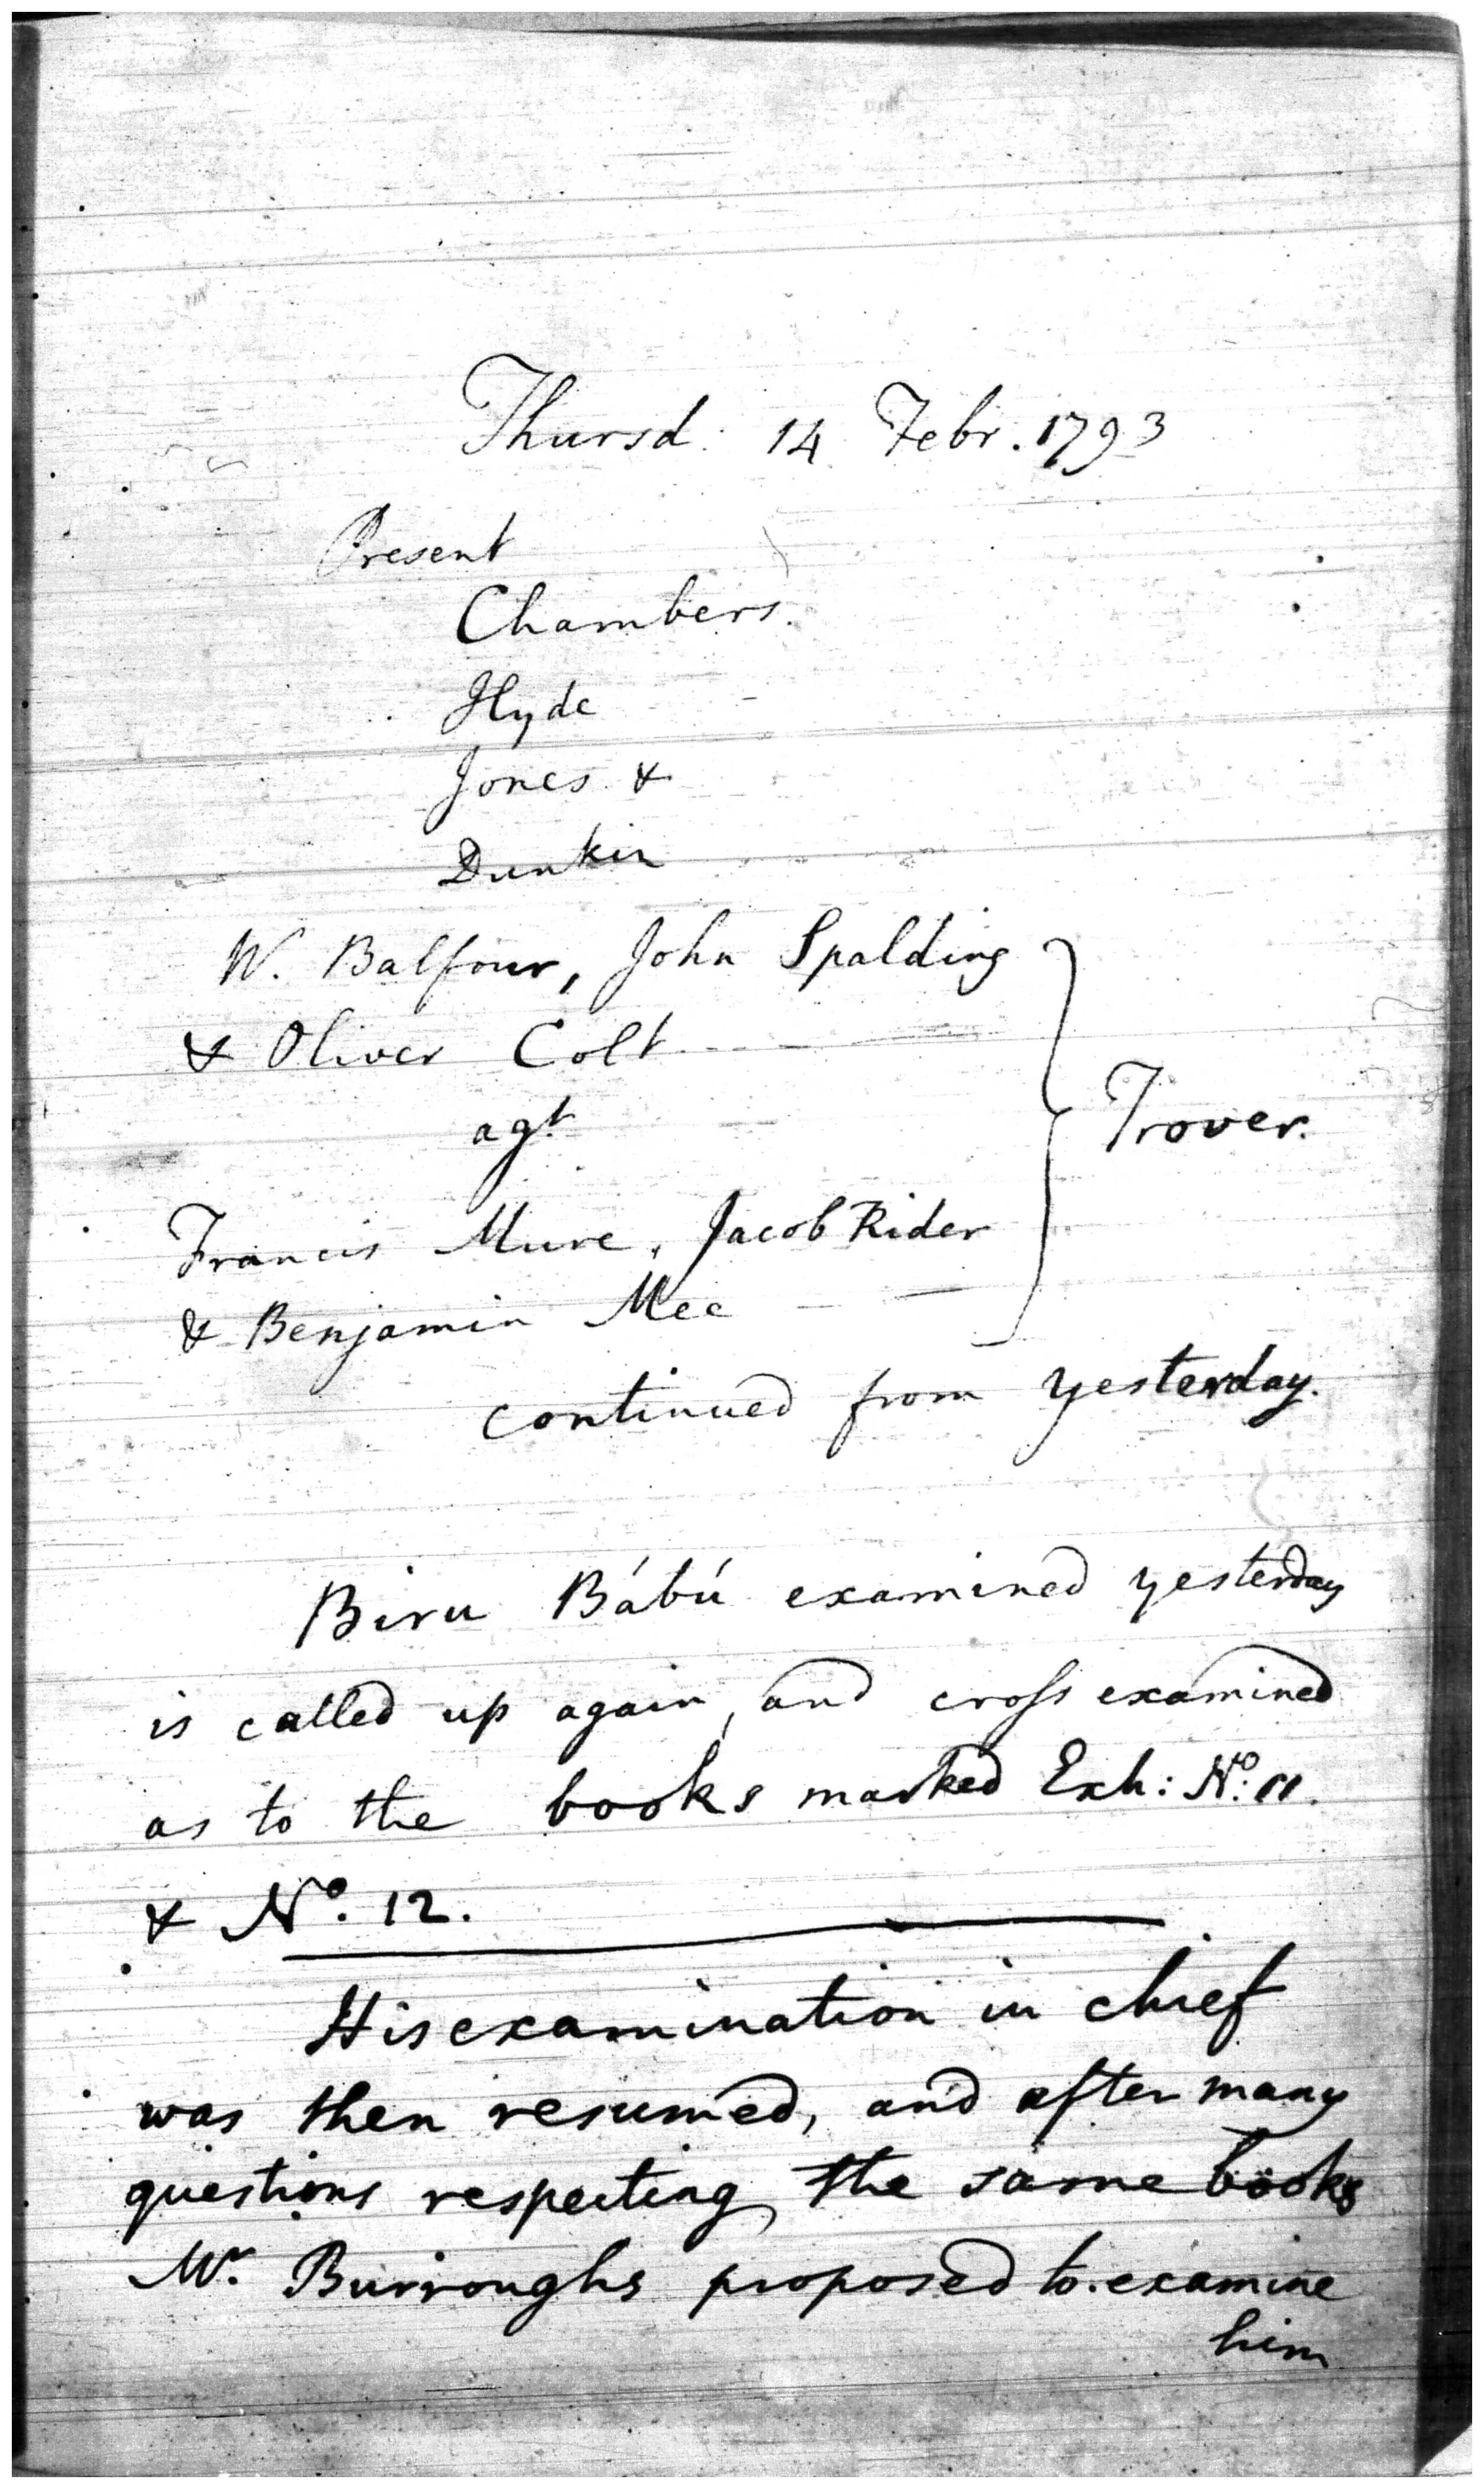 Thursd: 14 Febr. 1793
Present
Chambers.
Hyde
Jones &
Dunkin
W. Balfour, John Spalding
& Oliver Colt
agt.
Trover.
Francis Mure, Jacob Rider
& Benjamin Mee
continued from yesterday.
Biru Bábú examined yesterday
is called up again, and cross examined
as to the books marked Exh: No: 11.
& No. 12.
His examination in chief
was then resumed, and after many
questions respecting the same books
Mr. Burroughs proposed to examine
him